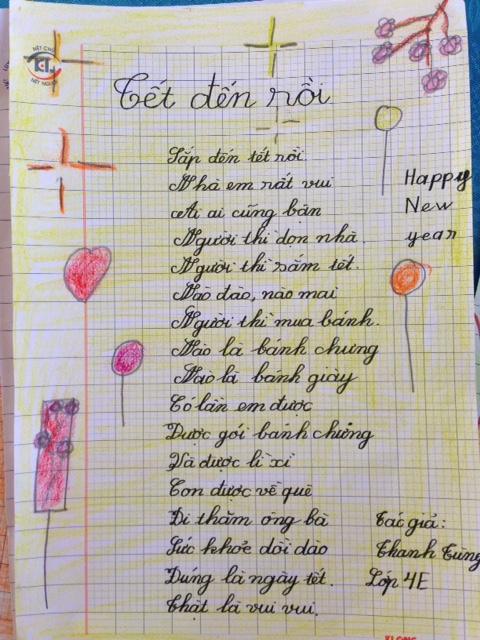 NÉT CHỮ
NẾT NGƯỜI
Tết đến rồi
Sắp đến tết rồi
Nhà em rất vui
Ai ai cũng bận
Người thì dọn nhà.
Người thì sắm tết.
Nào đào, nào mai
Người thì mua bánh.
Nào là bánh chưng
Nào là bánh giày
Có lần em được
Được gói bánh chưng
Và được lì xì
Còn được về quê
Đi thăm ông bà
Sức khỏe dồi dào
Đúng là ngày tết.
Thật là vui vui.
Happy
New
year
Tác giả:
Thanh Tùng
Lớp 4E
KLONG